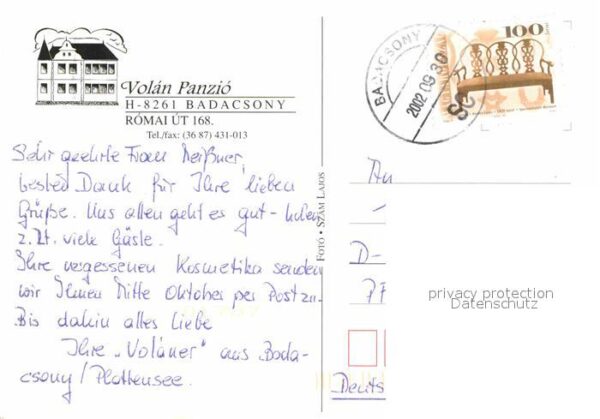 Volán Panzió
H-8261 BADACSONY
RÓMAI ÚT 168.
Tel./fax: (36 87) 431-013
Sehr geehrte Frau Meißner,
besten Dank für Ihre lieben
Grüße. Uns allen geht es gut - haben
z. Zt. viele Gäste.
Ihre vergessenen Kosmetika senden
wir Ihnen Mitte Oktober per Post zu.
Bis dahin alles Liebe
Ihre „Voláner" aus Bada-
csony/Plattensee.
FOTÓ • SZÁM LAJOS
BADACSONY
2002 09 30
100
An
D-
privacy protection
Datenschutz
Deuts